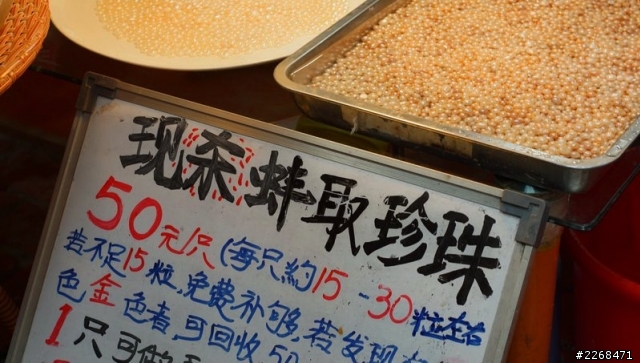 现杀蚌取珍珠
50元/只(每只約15-30粒左右
若不足15粒,免费补够,若发现有
色金色者,可回收50
1只可做
#2268471